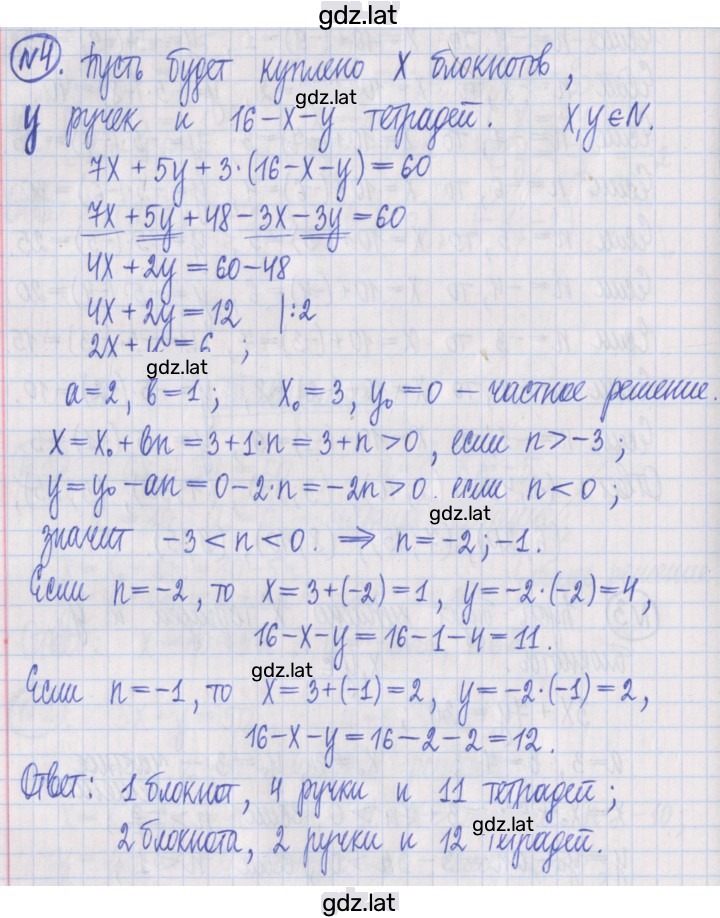 gdz.lat
№4. Пусть будет куплено x блокнотов,
gdz.lat
y ручек и 16-x-y тетрадей. x,y∈N.
7x + 5y + 3·(16-x-y) = 60
7x + 5y + 48 - 3x - 3y = 60
4x + 2y = 60-48
4x + 2y = 12 |:2
2x + y = 6 ;
gdz.lat
a=2, b=1; x₀=3, y₀=0 — частное решение.
x = x₀ + bn = 3+1·n = 3+n > 0, если n > -3;
y = y₀ - an = 0-2·n = -2n > 0. если n < 0;
gdz.lat
значит -3 < n < 0. ⟹ n = -2; -1.
Если n = -2, то x = 3+(-2) = 1, y = -2·(-2) = 4,
16-x-y = 16-1-4 = 11.
gdz.lat
Если n = -1, то x = 3+(-1) = 2, y = -2·(-1) = 2,
16-x-y = 16-2-2 = 12.
Ответ: 1 блокнот, 4 ручки и 11 тетрадей;
gdz.lat
2 блокнота, 2 ручки и 12 тетрадей.
gdz.lat